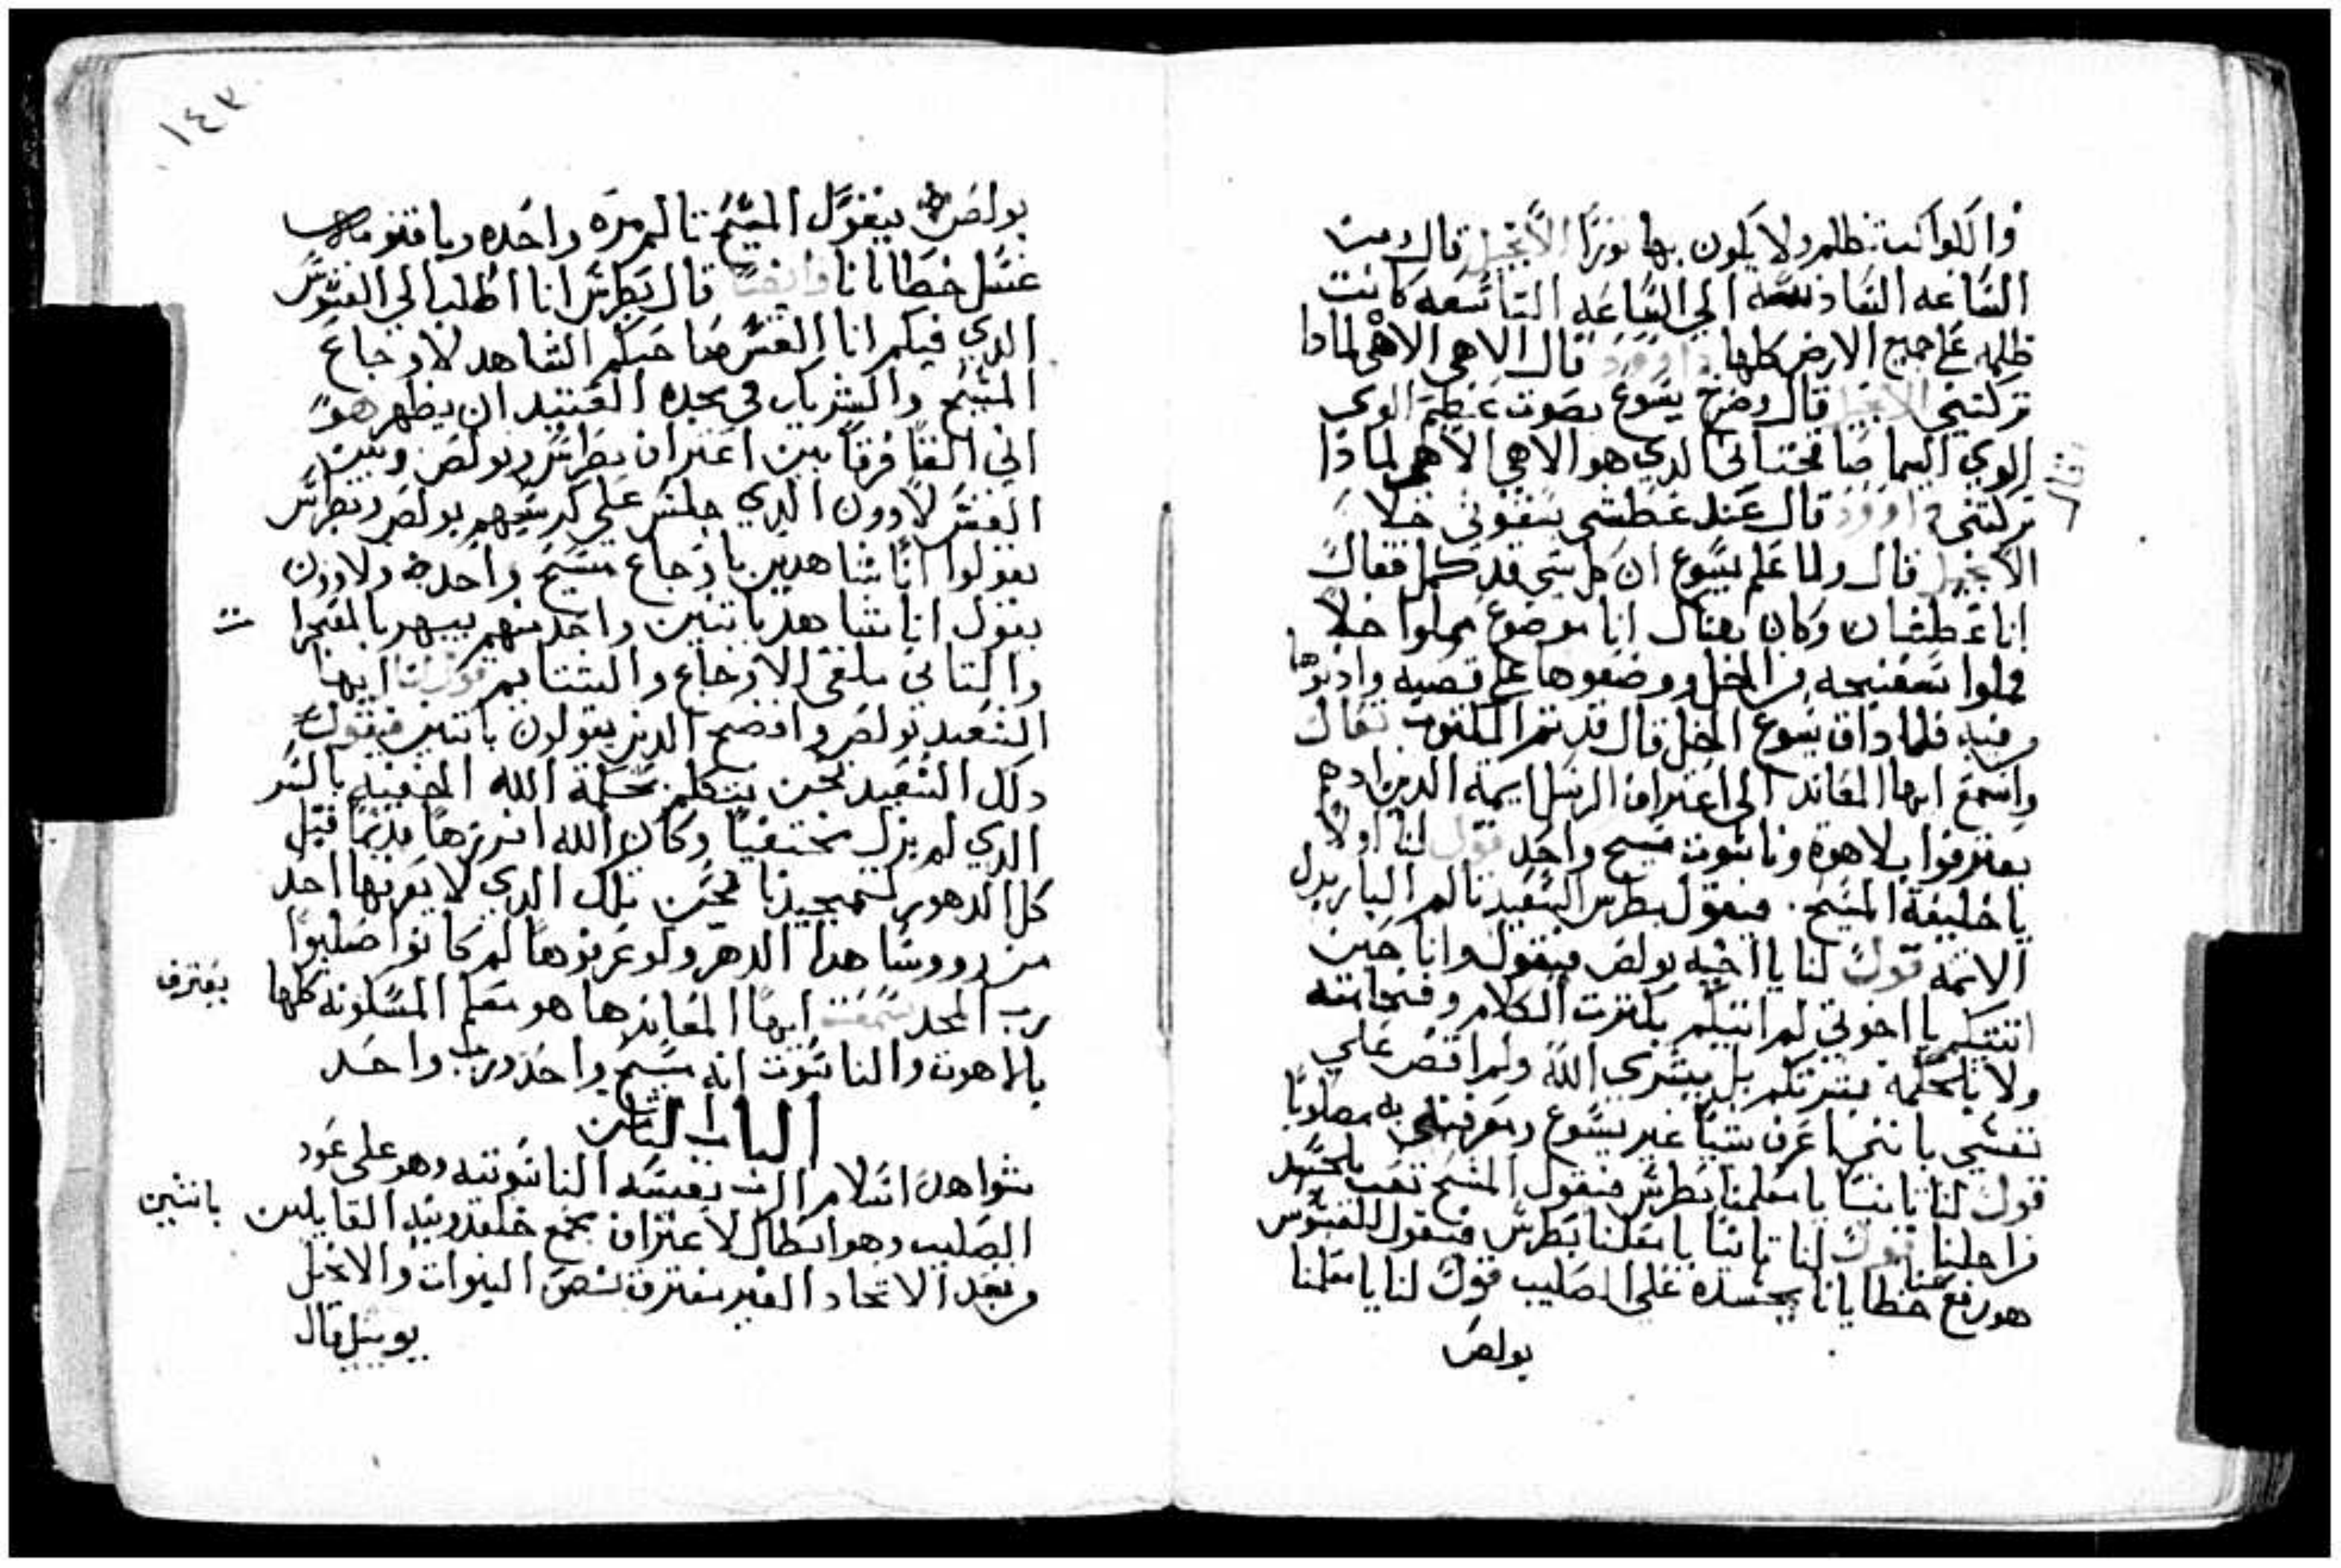 والكواكب تظلم ولا يكون بها نورًا الانجيل قال ومن
الساعه السادسه الي الساعه التاسعه كانت
ظلمه علي جميع الارض كلها داوود قال الاهي الاهي لمادا
تركتني الانجيل قال وصرخ يسوع بصوت عظيم الوي
الوي اليما صافختاني الدي هو الاهي الاهي لمادا
تركتني داوود قال عند عطشي يسقوني خلا
الانجيل قال ولما علم يسوع ان كل شي قد كمل فقال
انا عطشان وكان هناك انا موضوع مملوا خلاً
فملوا سفنجه من الخل ووضعوها علي قصبه وادنوها
من فيه فلما داق يسوع الخل قال قد تم المكتوب تعال
واسمع ايها المعاند الي اعتراف الرسل ايمة الدين اد هم
يعترفوا بلاهوة وناسوت مسيح واحد قول لنا اولاً
يا خليفة المسيح. فيقول بطرس السعيد تالم البار بدل
الاتمه قول لنا يا اخيه بولص فيقول وانا حين
اتيتكم يا اخوتي لم اتيكم بكترت الكلام وفخامته
ولا بالحكمة بشرتكم بل بسر الله ولم اقض علي
نفسي بانني اعرف شيًا غير يسوع ومعرفتي به مصلوبًا
قول لنا تانيتا يا معلمنا بطرس فيقول المسيح تعب بالجسد
من اجلنا قول لنا تالتًا يا معلمنا بطرس فيقول للقسوس
هو رفع عنا خطايانا بجسده علي الصليب قول لنا يا معلمنا
بولص
وقال
١٤٣
بولص فيقول المسيح تالم مره واحده وباقنومه
غسل خطايانا وايضا قال بطرس انا اطلب الي القسوس
الدي فيكم انا القس صاحبكم الشاهد لاوجاع
المسيح والشريك في مجده العتيد ان يظهر هو
اني القا فرقا بين اعتراف بطرس وبولص وبين
القس لاوون الدي جلس علي كرسيهم بولص وبطرس
يقولوا انا شاهدين باوجاع مسيح واحد ولاوون
يقول انا شاهد باتنين واحد منهم يبهر بالمعجزا
ت
والتاني ملقي للاوجاع والشتايم قول لنا ايها
السعيد بولص وافضح الدين يقولون باتنين فيقول
دلك السعيد نحن نتكلم بحكمة الله المخفيه بالسر
الدي لم يزل مختفيًا وكان الله افرزها قديمًا قبل
كل الدهور لتمجيدنا نحن تلك الدي لا يعرفها احد
من رووسا هدا الدهر ولو عرفوها لم كانوا صلبوا
رب المجد سمعت ايها المعاند ها هو معلم المسكونه كلها يعترف
بالاهوت والناسوت انه مسيح واحد ورب واحد
الباب التامن
شواهد اسلام الرب نفسه الناسوتيه وهو علي عود
الصليب وهو ابطال لاعتراف مجمع خلقدونيه القايلين باتنين
من بعد الاتحاد الغير مفترق بنص النبوات والانجيل
يوييل قال